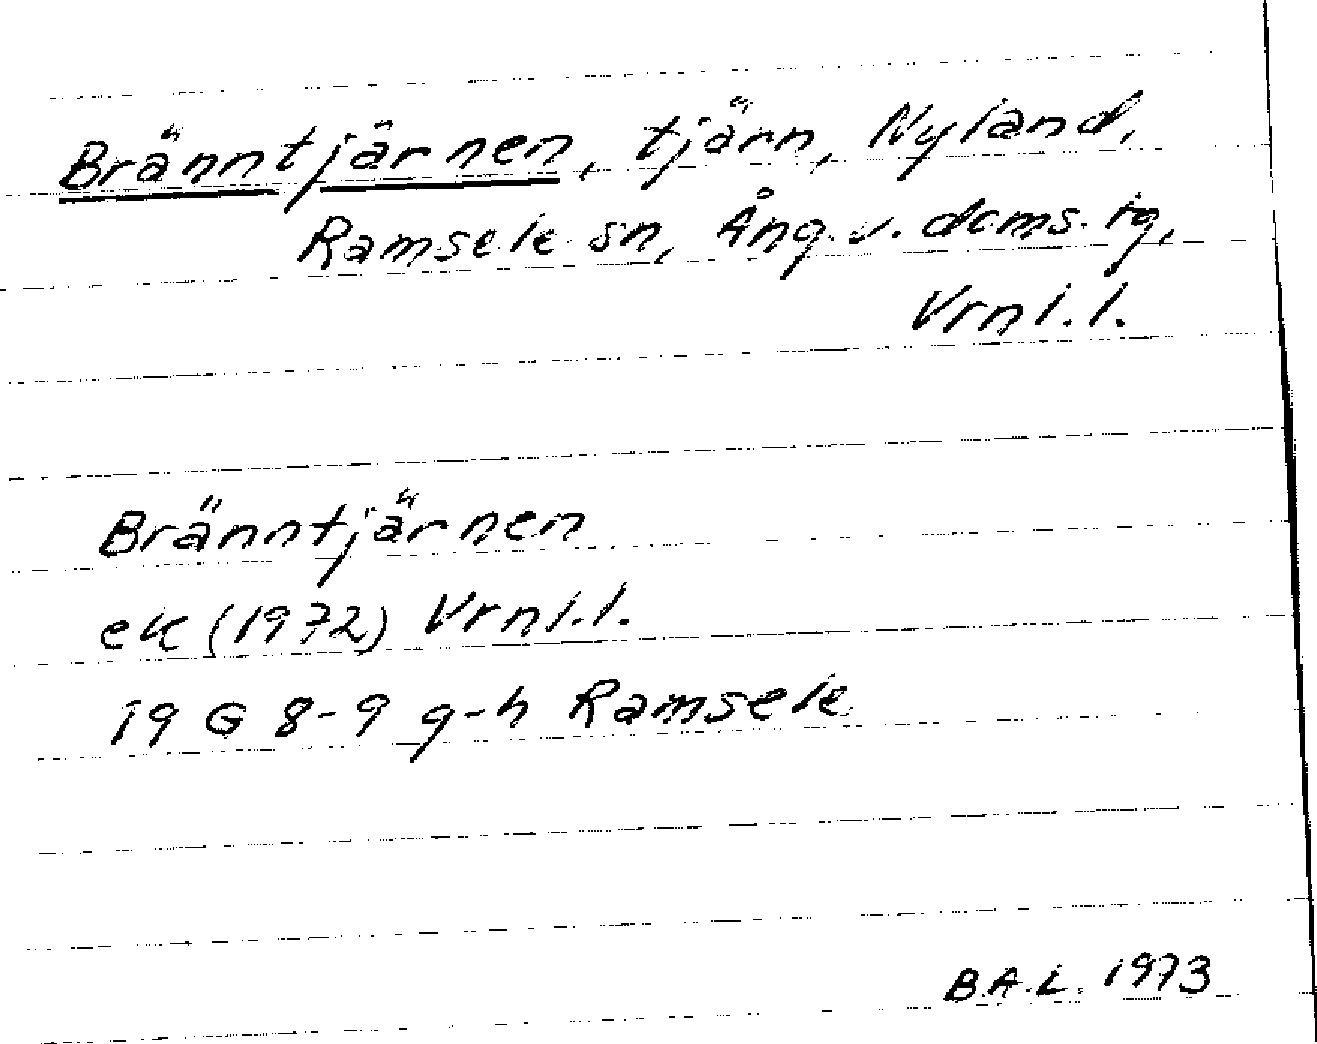 Bränntjärnen, tjärn, Nyland,
Ramsele sn, Ång. v. doms. tg,
Vrnl.l.
Bränntjärnen
ek (1972) Vrnl.l.
19 G 8-9 g-h Ramsele
B.A.L. 1973